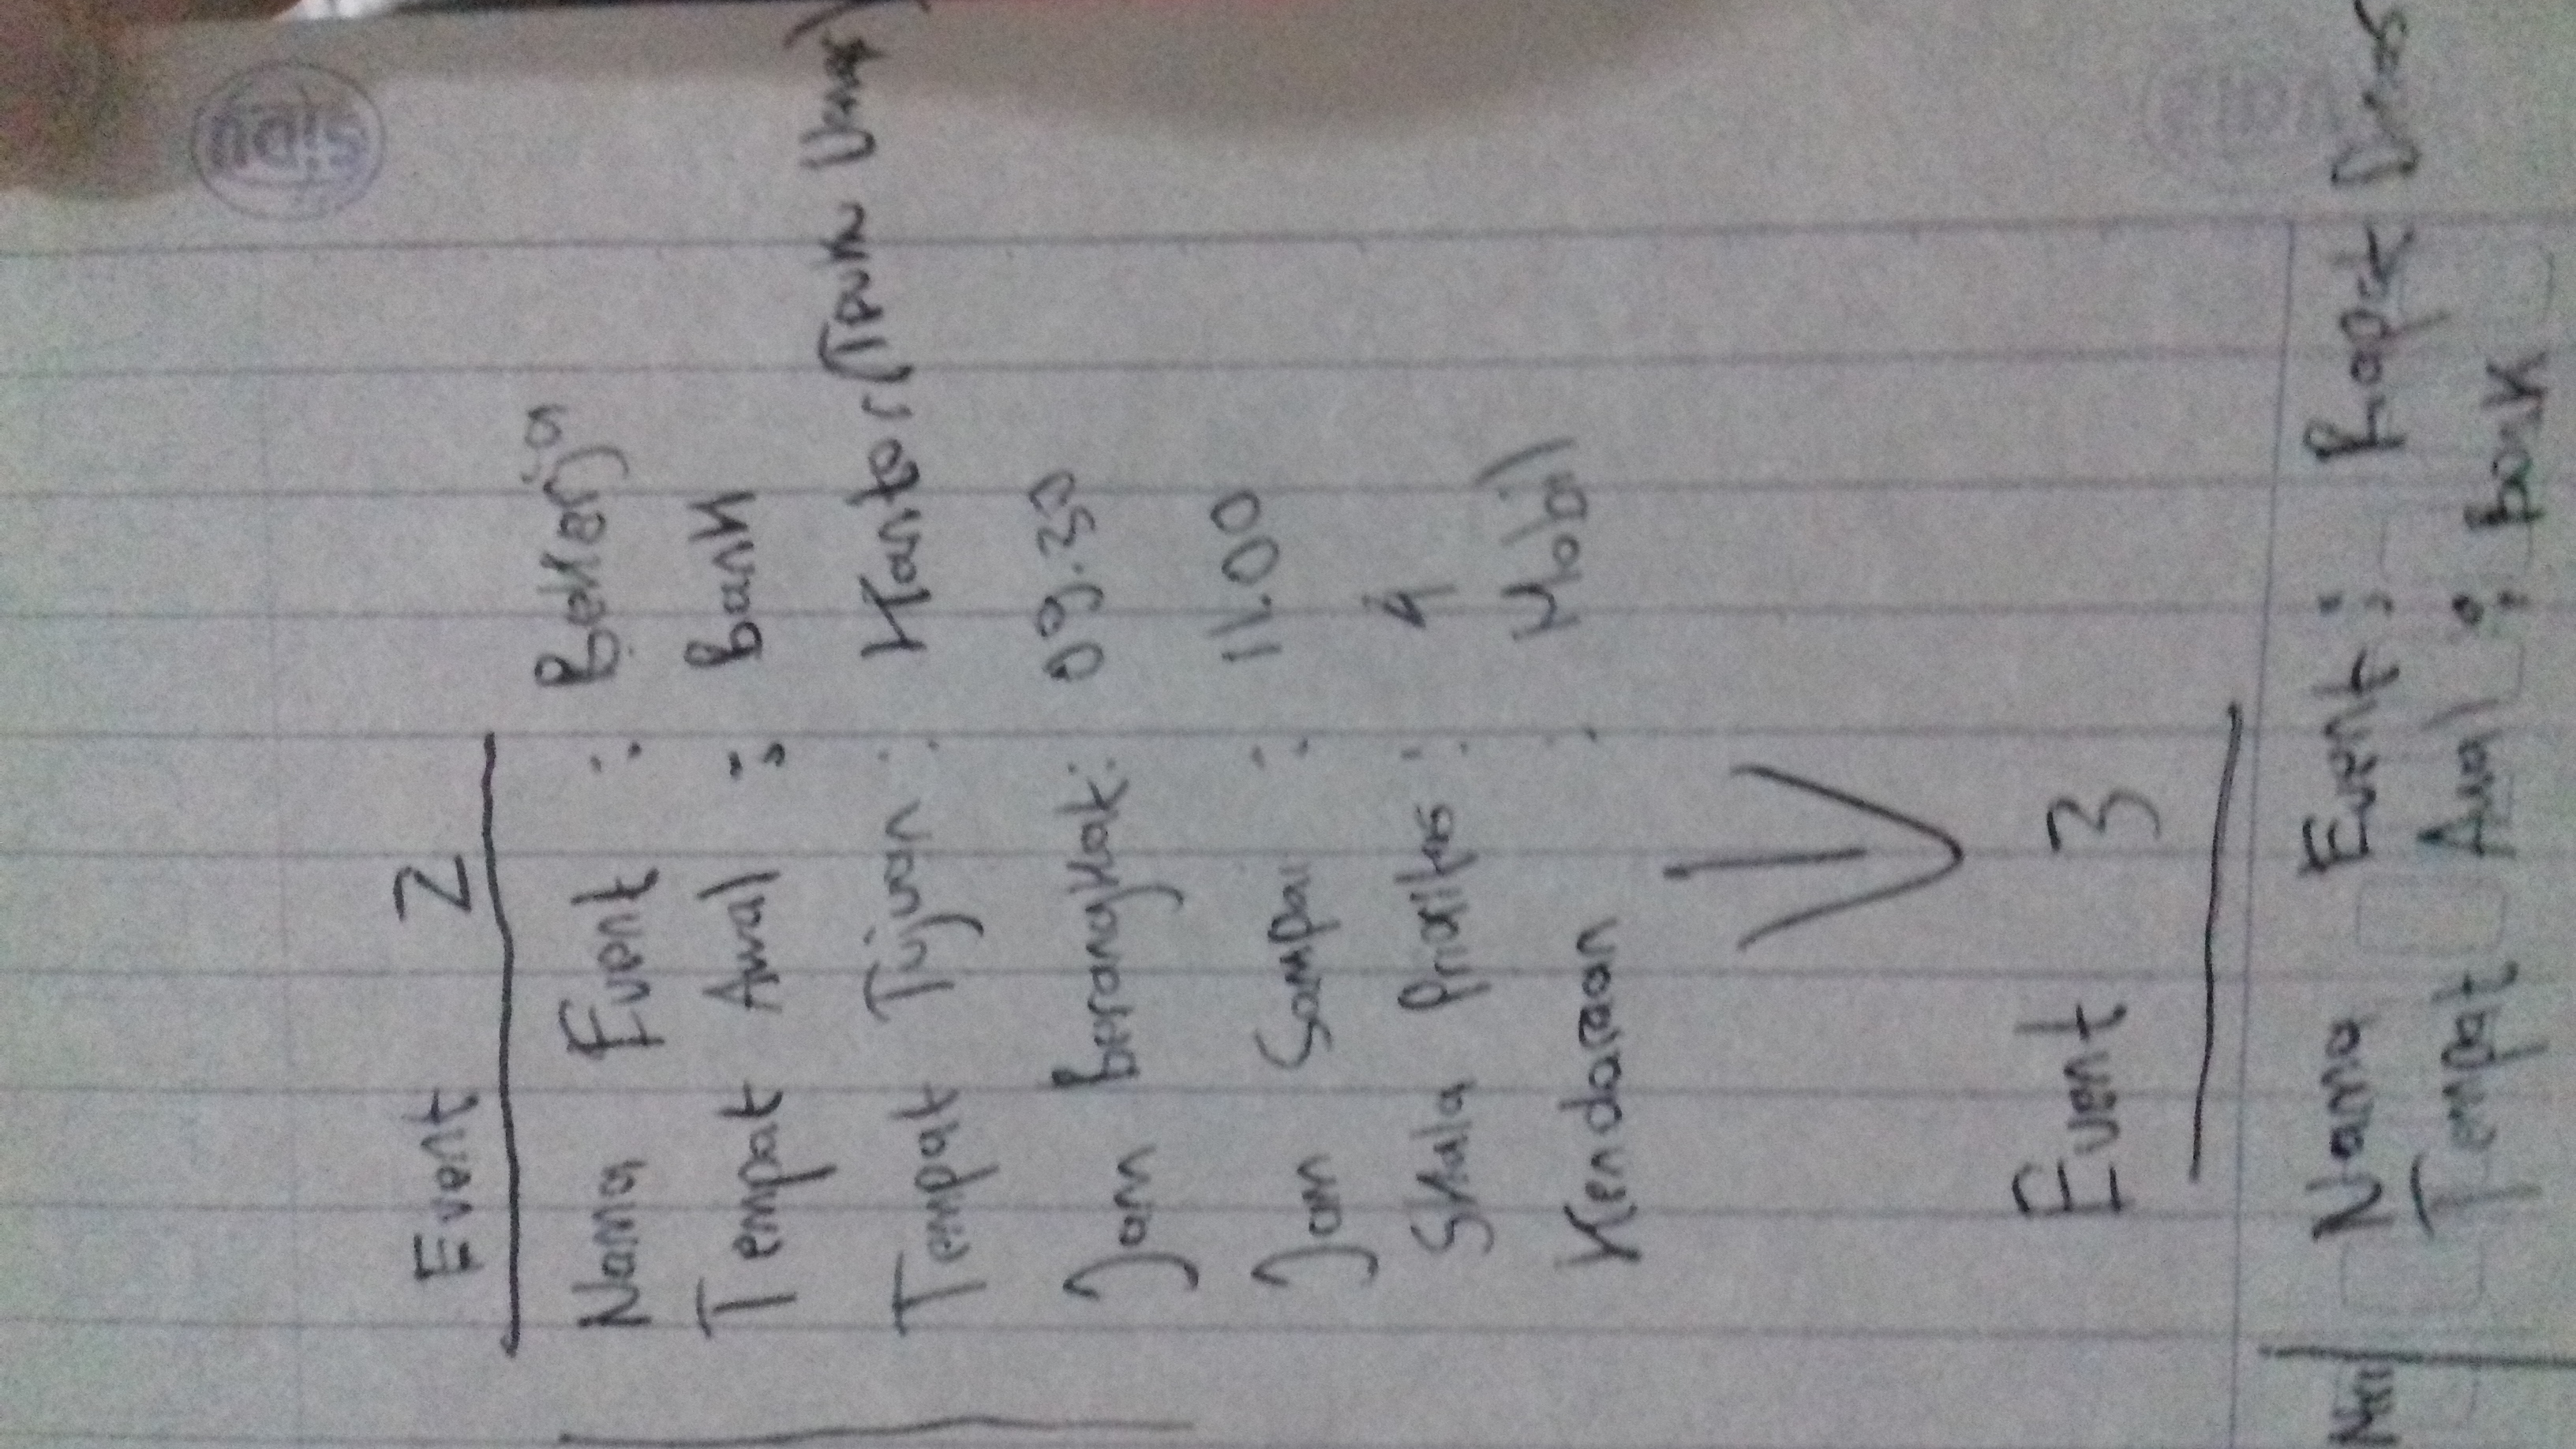 Event 2
Nama Event : Bekerja
Tempat Awal : Bank
Tempat Tujuan : Kantor (Teuku Umar)
Jam Berangkat : 09.30
Jam Sampai : 11.00
Skala Prioritas : 4
Kendaraan : Mobil
Event 3
Nama Event : Rapat
Tempat Awal : Bank
sidu